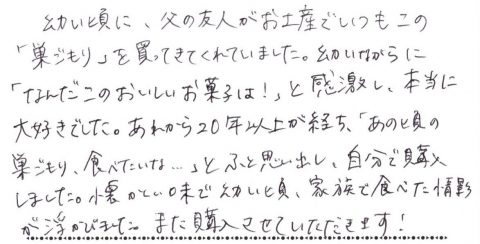 幼い頃に、父の友人がお土産でいつもこの
「巣ごもり」を買ってきてくれていました。幼いながらに
「なんだこのおいしいお菓子は！」と感激し、本当に
大好きでした。あれから20年以上が経ち、「あの頃の
巣ごもり、食べたいな…」とふと思い出し、自分で購入
しました。懐かしい味で幼い頃、家族で食べた情景
が浮かびました。また購入させていただきます！